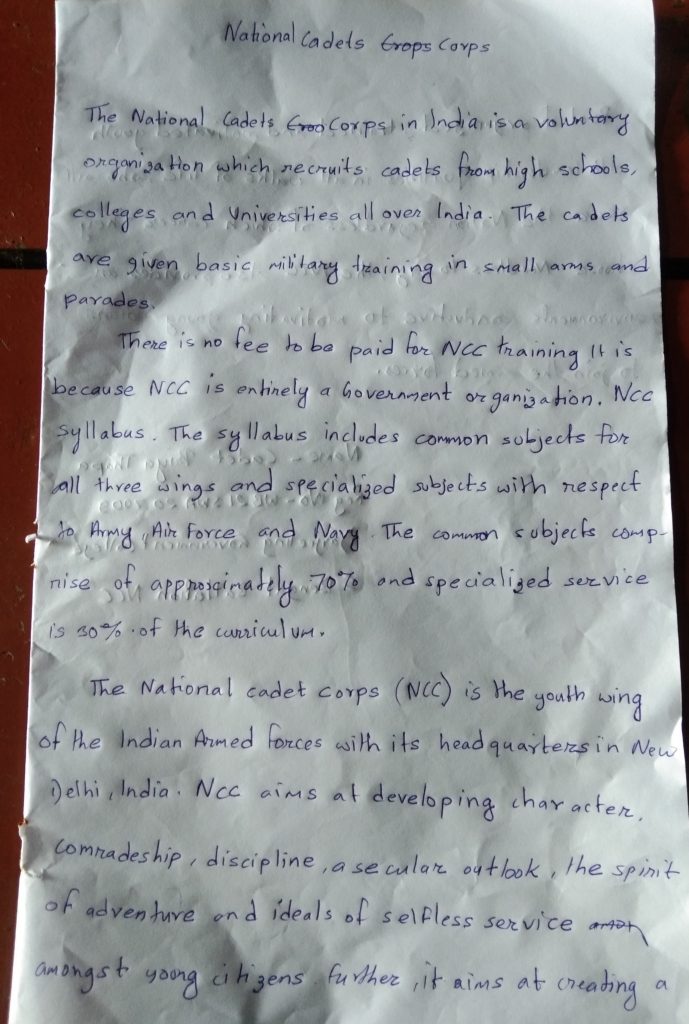 National Cadets Crops Corps
The National Cadets Croo Corps in India is a voluntary
organization which recruits cadets from high schools,
colleges and Universities all over India. The cadets
are given basic military training in small arms and
parades.
There is no fee to be paid for NCC training It is
because NCC is entirely a Government organization. NCC
syllabus. The syllabus includes common subjects for
all three wings and specialized subjects with respect
to Army, Air Force and Navy. The common subjects comp-
rise of approximately 70% and specialized service
is 30% of the curriculum.
The National cadet corps (NCC) is the youth wing
of the Indian Armed forces with its headquarters in New
Delhi, India. NCC aims at developing character,
comradeship, discipline, a secular outlook, the spirit
of adventure and ideals of selfless service
amongst young citizens. Further, it aims at creating a